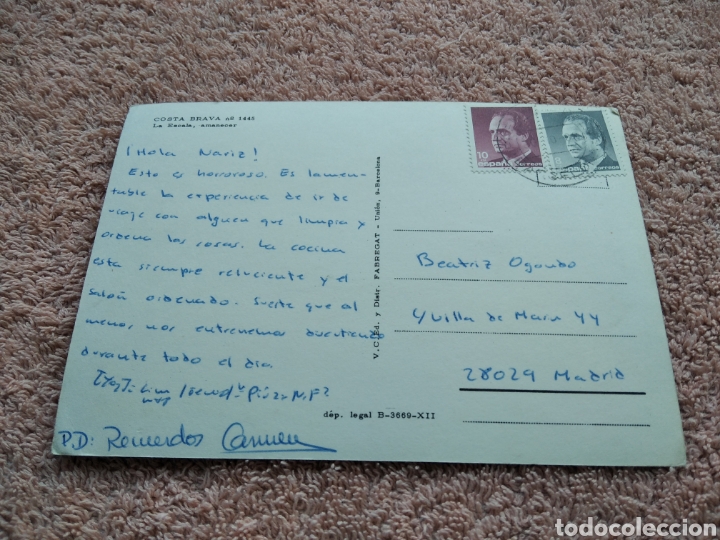 COSTA BRAVA nº 1445
La Escala, amanecer
¡Hola Nariz!
Esto es horroroso. Es lamen-
table la experiencia de ir de
viaje con alguien que limpia y
ordena las cosas. La cocina
esta siempre reluciente y el
salón ordenado. Suerte que al
menos nos entretenemos
durante todo el dia
P.D: Recuerdos Carmen
V. C. Ed. y Distr. FABREGAT - Unión, 9-Barcelona
dép. legal B-3669-XII
10
ESPAÑA CORREOS
Beatriz Ogando
C/ Villa de Marin 44
28029 Madrid
todocoleccion